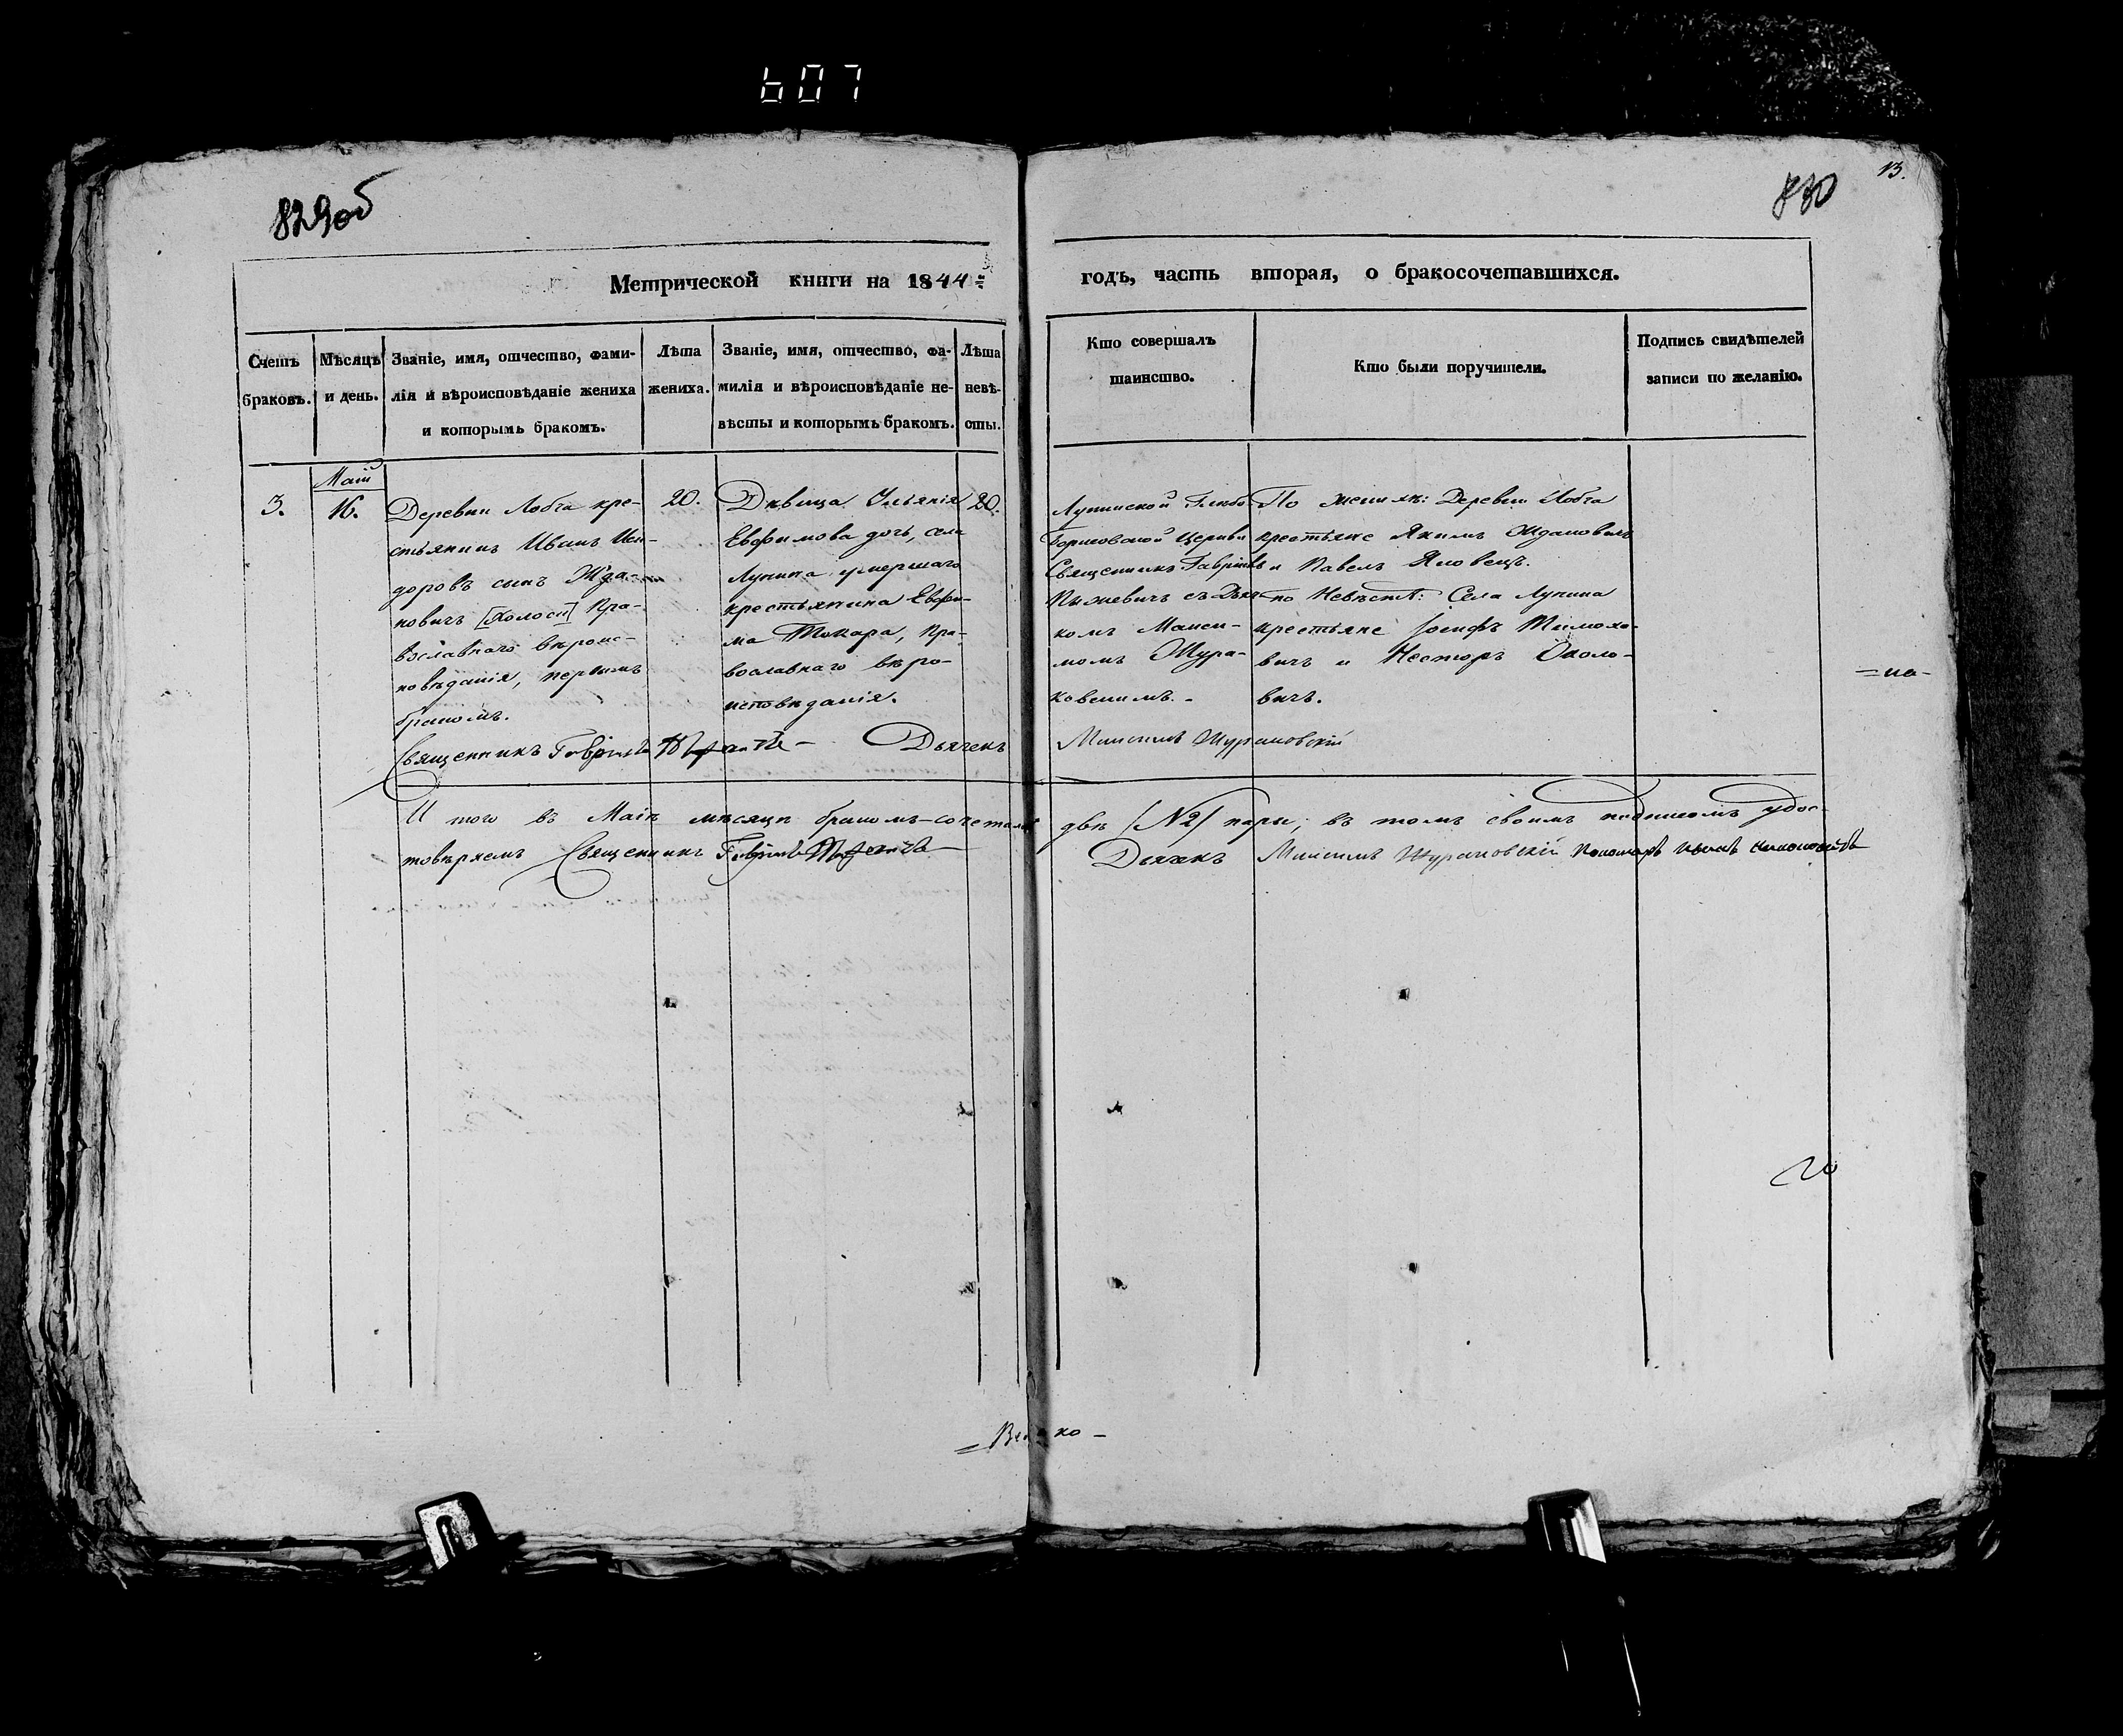 607
829об
830
13.
Метрической книги на 1844
годъ, часть вторая, о бракосочетавшихся.
Счетъ браковъ.
Мѣсяцъ и день.
Званіе, имя, отчество, фами-
лія и вѣроисповѣданіе жениха
и которымъ бракомъ.
Лѣта
жениха.
Званіе, имя, отчество, фа-
милія и вѣроисповѣданіе не-
вѣсты и которымъ бракомъ.
Лѣта
невѣ-
сты.
Кто совершалъ
таинство.
Кто были поручители.
Подпись свидѣтелей
записи по желанію.
3.
Маій
16.
Деревни Лобча кре-
стьянинъ Иванъ Иси-
доровъ сынъ Жда-
новичъ [Холоси] Пра-
вославнаго вѣроис-
повѣданія, первымъ
бракомъ.
20.
Дѣвица Ульянія
Евфимова дочь, села
Лунина умершаго
крестьянина Евфи-
ма Токара, Пра-
вославнаго вѣро-
исповѣданія.
20.
Лунинской Глѣбо-
Борисовской Церкви
Священникъ Гавріилъ
съ Дьяч-
комъ Макси-
момъ Жура-
ковскимъ.-
По женихѣ: Деревни Лобча
крестьяне Якимъ Ждановичъ
и Павелъ Яловецъ.
по Невѣстѣ: Села Лунина
крестьяне Іосифъ Тимохо-
вичъ и Несторъ Около-
вичъ.
=на-
Священникъ Гавріилъ Дьячекъ
Максимъ Жураковскій
И того въ Маіѣ мѣсяцѣ бракомъ-сочеталось двѣ [№2] пары; въ томъ своимъ подписомъ удос-
товѣряемъ Священникъ Гавріилъ Дьячекъ Максимъ Жураковскій Пономарь
=Велико-